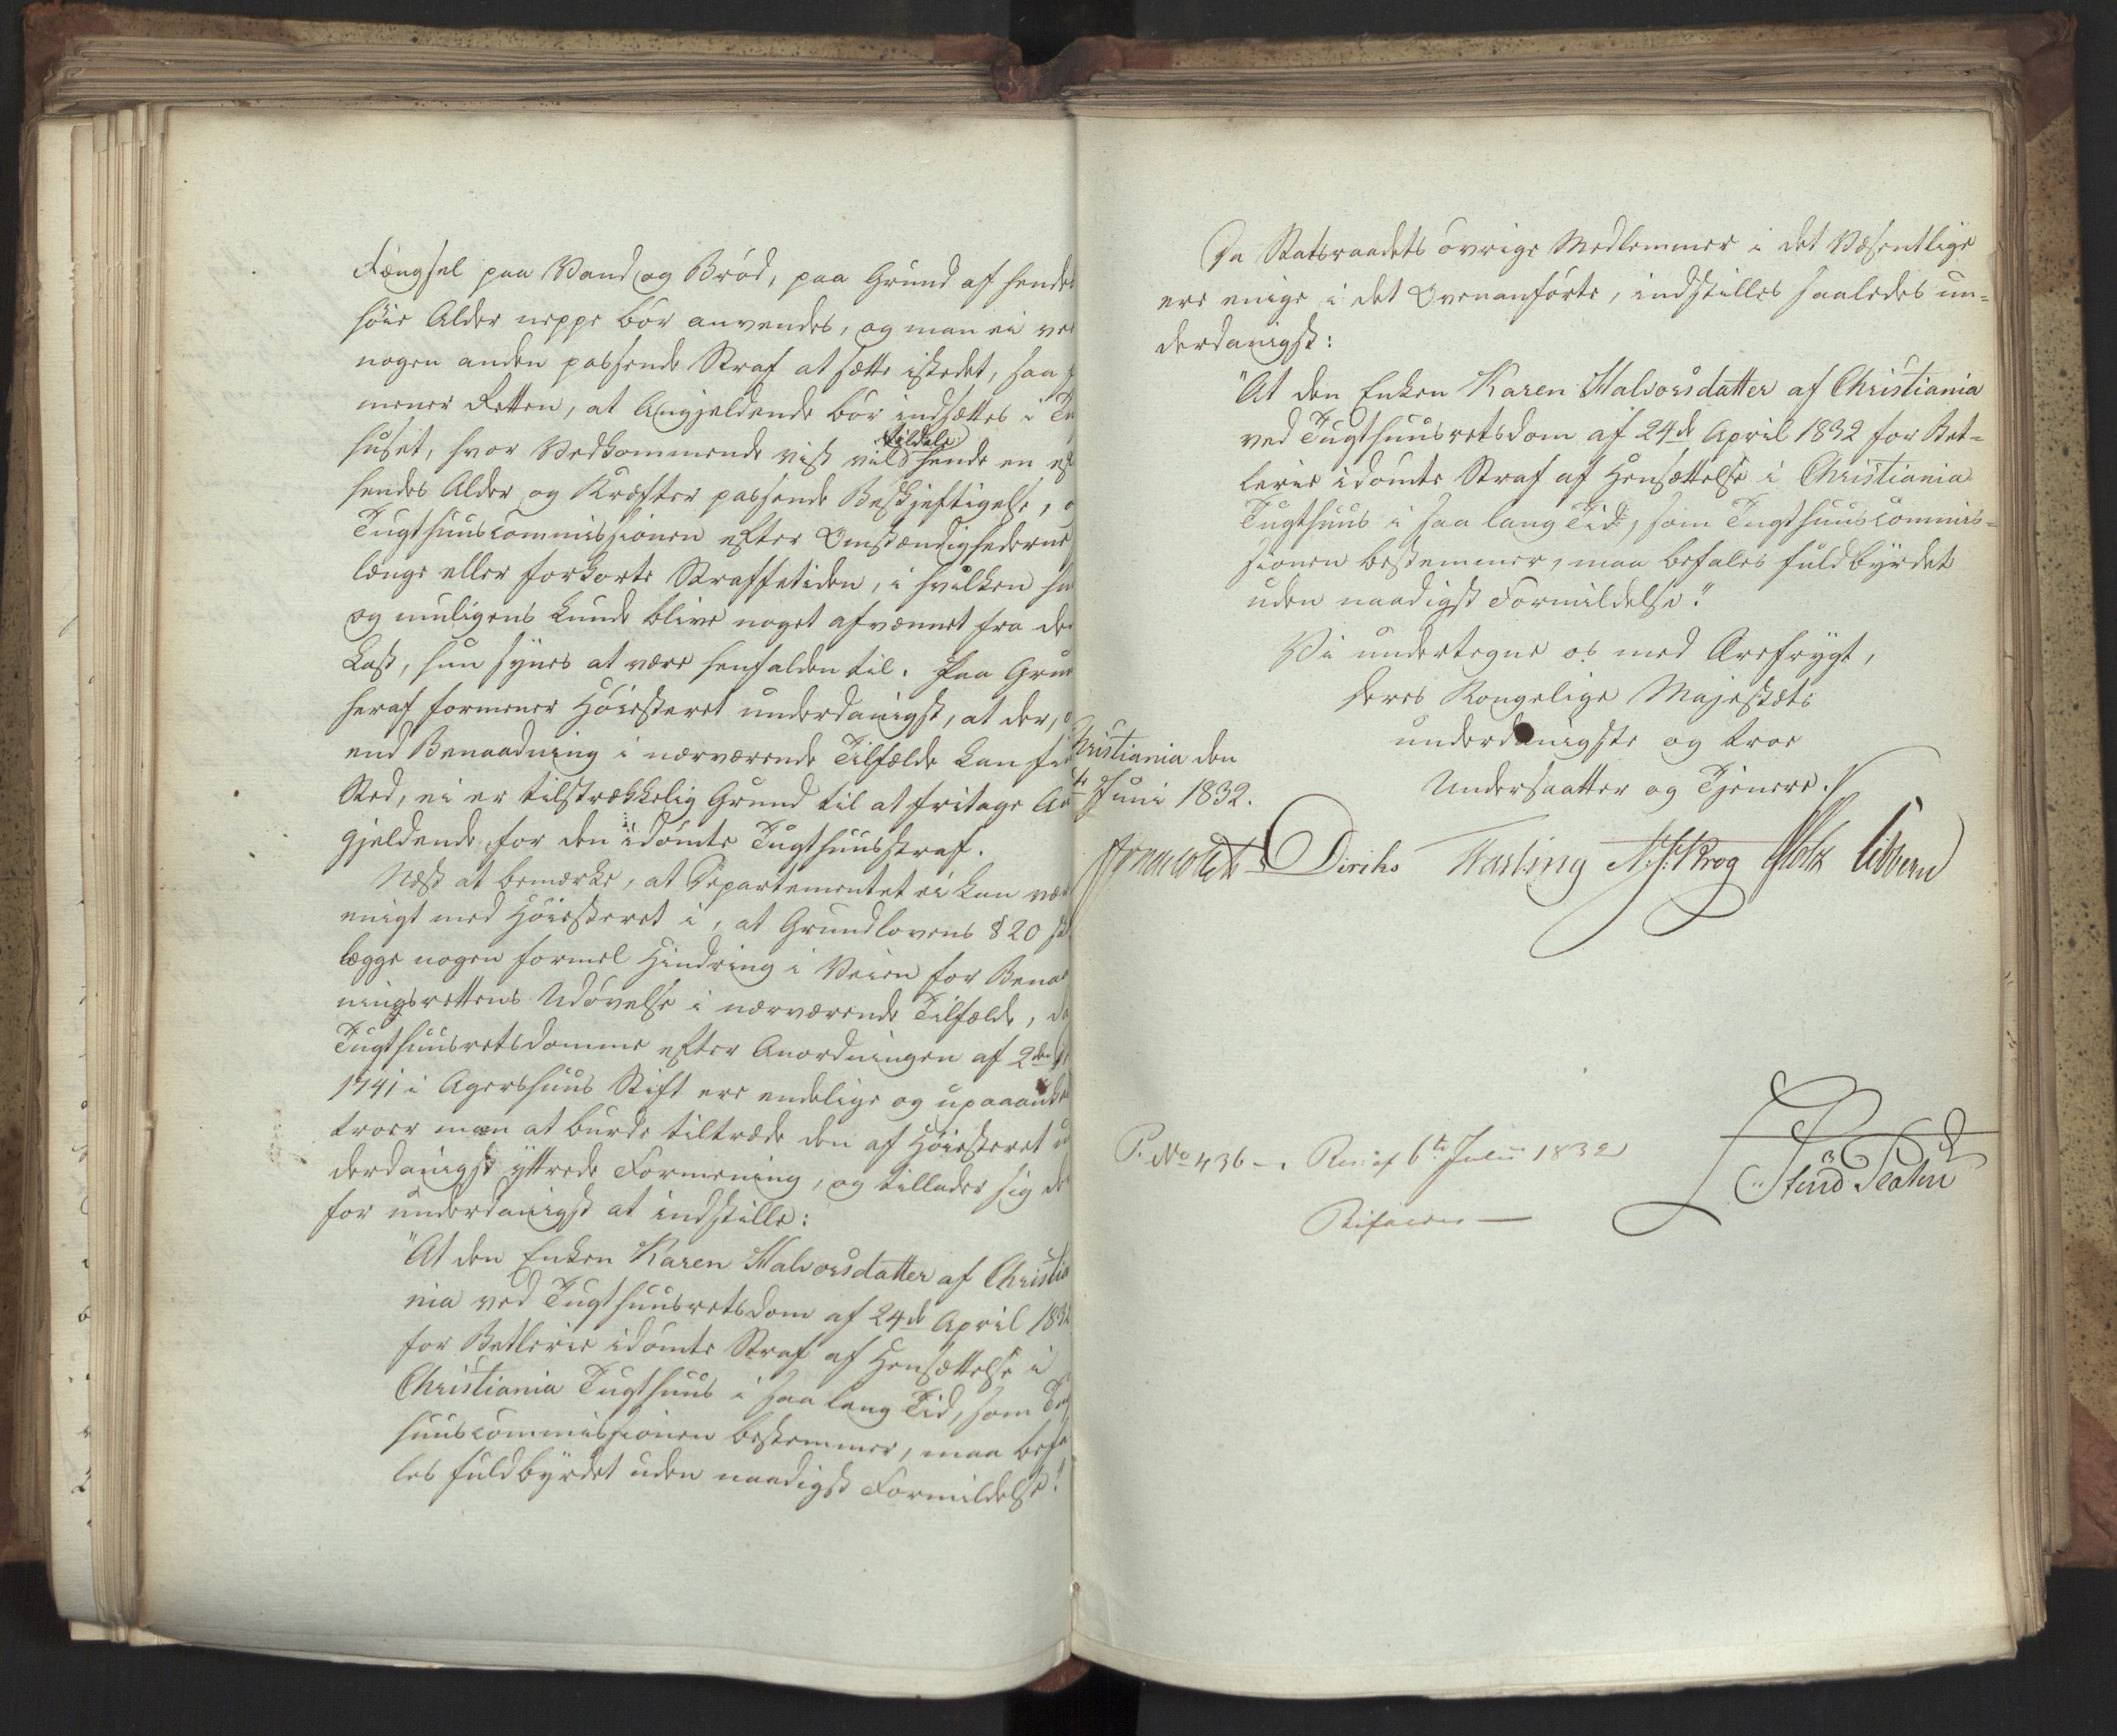 Fængsel paa Vand og Brød, paa Grund af hendes
høie Alder neppe bør anvendes, og man ei veed
nogen anden passende Straf at sætte istedet, saa
mener Retten, at Angjeldende bør indsættes i
huset, hvor Vedkommende vist vilde tildele hende en
hendes Alder og Kræfter passende Beskjeftigelse,
Tugthuuscommissionen efter Omstændighederne
længe eller forkorte Straffetiden, i hvilken
og muligens kunde blive noget afvænnet fra
Last, hun synes at være henfalden til. Paa Grund
heraf formener Høiesteret underdanigst, at der,
end Benaadning i nærværende Tilfælde kan finde
Sted, ei er tilstrækkelig Grund til at fritage An
gjeldende for den idømte Tugthuusstraf.
Næst at bemærke, at Departementet ei kan være
enigt med Høiesteret i, at Grundlovens § 20
lægge nogen formel Hindring i Veien for Benaad
ningsrettens Udøvelse i nærværende Tilfælde, da
Tugthuusretsdomme efter Anordningen af 2den
1741 i Agershuus Stift ere endelige og upaaankede
troer man at burde tiltræde den af Høiesteret un
derdanigst yttrede Formening, og tillader sig
for underdanigst at indstille:
"At den Enken Karen Halvorsdatter af Christia
nia ved Tugthuusretsdom af 24de April 1832
for Betlerie idømte Straf af Hensættelse i
Christiania Tugthuus i saa lang Tid, som Tugt
huuscommissionen bestemmer, maa befa
les fuldbyrdet uden naadigst Formildelse."
Da Statsraadets øvrige Medlemmer i det Væsentlige
ere enige i det Ovenanførte, indstilles saaledes un=
derdanigst:
"At den Enken Karen Halvorsdatter af Christiania
ved Tugthuusretsdom af 24de April 1832 for Bet=
lerie idømte Straf af Hensættelse i Christiania
Tugthuus i saa lang Tid, som Tugthuuscommis=
sionen bestemmer, maa befales fuldbyrdet
uden naadigst Formildelse."
Vi undertegne os med Ærefrygt,
Deres Kongelige Majestæts
underdanigste og troe
Undersaatter og Tjenere.
Christiania den
Juni 1832.
Diriks Fasting N. J. Krog Holst Sibbern
P. No 436 —. Res: af 6te Julii 1832
Bifaldes —